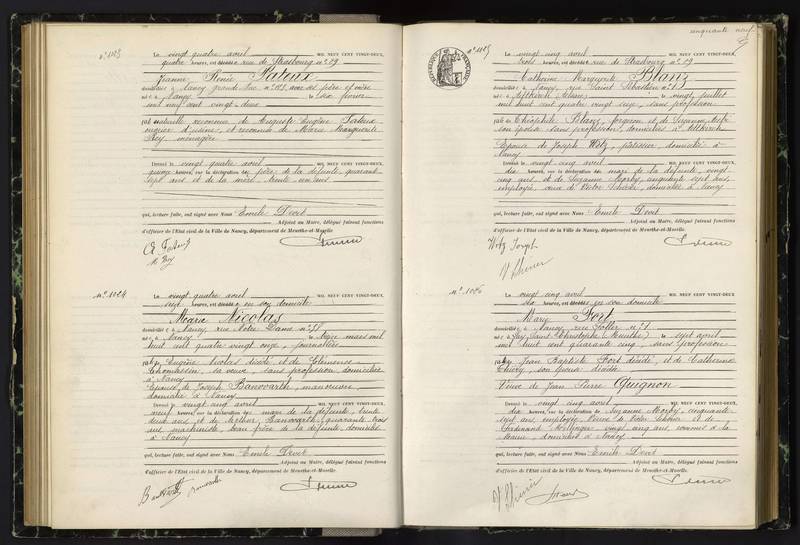 cinquante neuf
n° 1023
Le vingt quatre avril MIL NEUF CENT VINGT-DEUX,
quatre heures, est décédée rue de Strasbourg n° 19
Jeanne Renée Pateux
domiciliée à Nancy grande rue n° 123, avec ses père et mère
née à Nancy le six février
mil neuf cent vingt deux
fille naturelle reconnue de Auguste Eugène Pateux
ouvrier d'usine, et reconnue de Marie Marguerite
Rey ménagère
Dressé le vingt quatre avril MIL NEUF CENT VINGT-DEUX,
quinze heures, sur la déclaration du père de la défunte, quarante
sept ans et de la mère, trente un ans
qui, lecture faite, ont signé avec Nous Emile Devit
Adjoint au Maire, délégué faisant fonctions
d'officier de l'Etat civil de la Ville de Nancy, département de Meurthe-et-Moselle.
M Rey
n° 1024
Le vingt quatre avril MIL NEUF CENT VINGT-DEUX,
sept heures, est décédée en son domicile
Marie Nicolas
domiciliée à Nancy, rue Notre Dame n°
née à Nancy le treize mars mil
huit cent quatre vingt onze, journalière
fille de Eugène Nicolas décédé et de Clémence
Thomassin, sa veuve, sans profession domiciliée
à Nancy
Epouse de Joseph Banvvarth, manœuvre
domicilié à Nancy
Dressé le vingt cinq avril MIL NEUF CENT VINGT-DEUX,
neuf heures, sur la déclaration du mari de la défunte, trente
deux ans et de Arthur Banvvarth, quarante trois
ans, machiniste, beau frère de la défunte, domicilié
à Nancy
qui, lecture faite, ont signé avec Nous Emile Devit
Adjoint au Maire, délégué faisant fonctions
d'officier de l'Etat civil de la Ville de Nancy, département de Meurthe-et-Moselle.
n° 1025
Le vingt cinq avril MIL NEUF CENT VINGT-DEUX,
trois heures, est décédée rue de Strasbourg n° 19
Catherine Marguerite Blanz
domiciliée à Nancy, rue Saint Sébastien n° 1
née à Altkirch le vingt juillet
mil huit cent quatre vingt sept, sans profession
fille de Théophile Blanz, forgeron et de Suzanne
son épouse sans profession, domiciliés à Altkirch
Epouse de Joseph Wotz, pâtissier domicilié à
Nancy
Dressé le vingt cinq avril MIL NEUF CENT VINGT-DEUX,
dix heures, sur la déclaration du mari de la défunte, vingt-
cinq ans et de Suzanne Morby, cinquante sept ans,
employée, veuve de Victor domiciliée à Nancy
qui, lecture faite, ont signé avec Nous Emile Devit
Adjoint au Maire, délégué faisant fonctions
d'officier de l'Etat civil de la Ville de Nancy, département de Meurthe-et-Moselle.
Wotz Joseph
n° 1026
Le vingt cinq avril MIL NEUF CENT VINGT-DEUX,
six heures, est décédée en son domicile
Marie Fort
domiciliée à Nancy, rue n° 1
née à Saint Christophe le sept avril
mil huit cent quarante cinq, sans profession
fille de Jean Baptiste Fort décédé, et de Catherine
Thiéry, son épouse décédée
Veuve de Jean Pierre Guignon
Dressé le vingt cinq avril MIL NEUF CENT VINGT-DEUX,
dix heures, sur la déclaration de Suzanne Morby, cinquante
sept ans, employée, veuve de Victor et de
Ferdinand vingt cinq ans, commis à la
mairie domiciliés à Nancy
qui, lecture faite, ont signé avec Nous Emile Devit
Adjoint au Maire, délégué faisant fonctions
d'officier de l'Etat civil de la Ville de Nancy, département de Meurthe-et-Moselle.